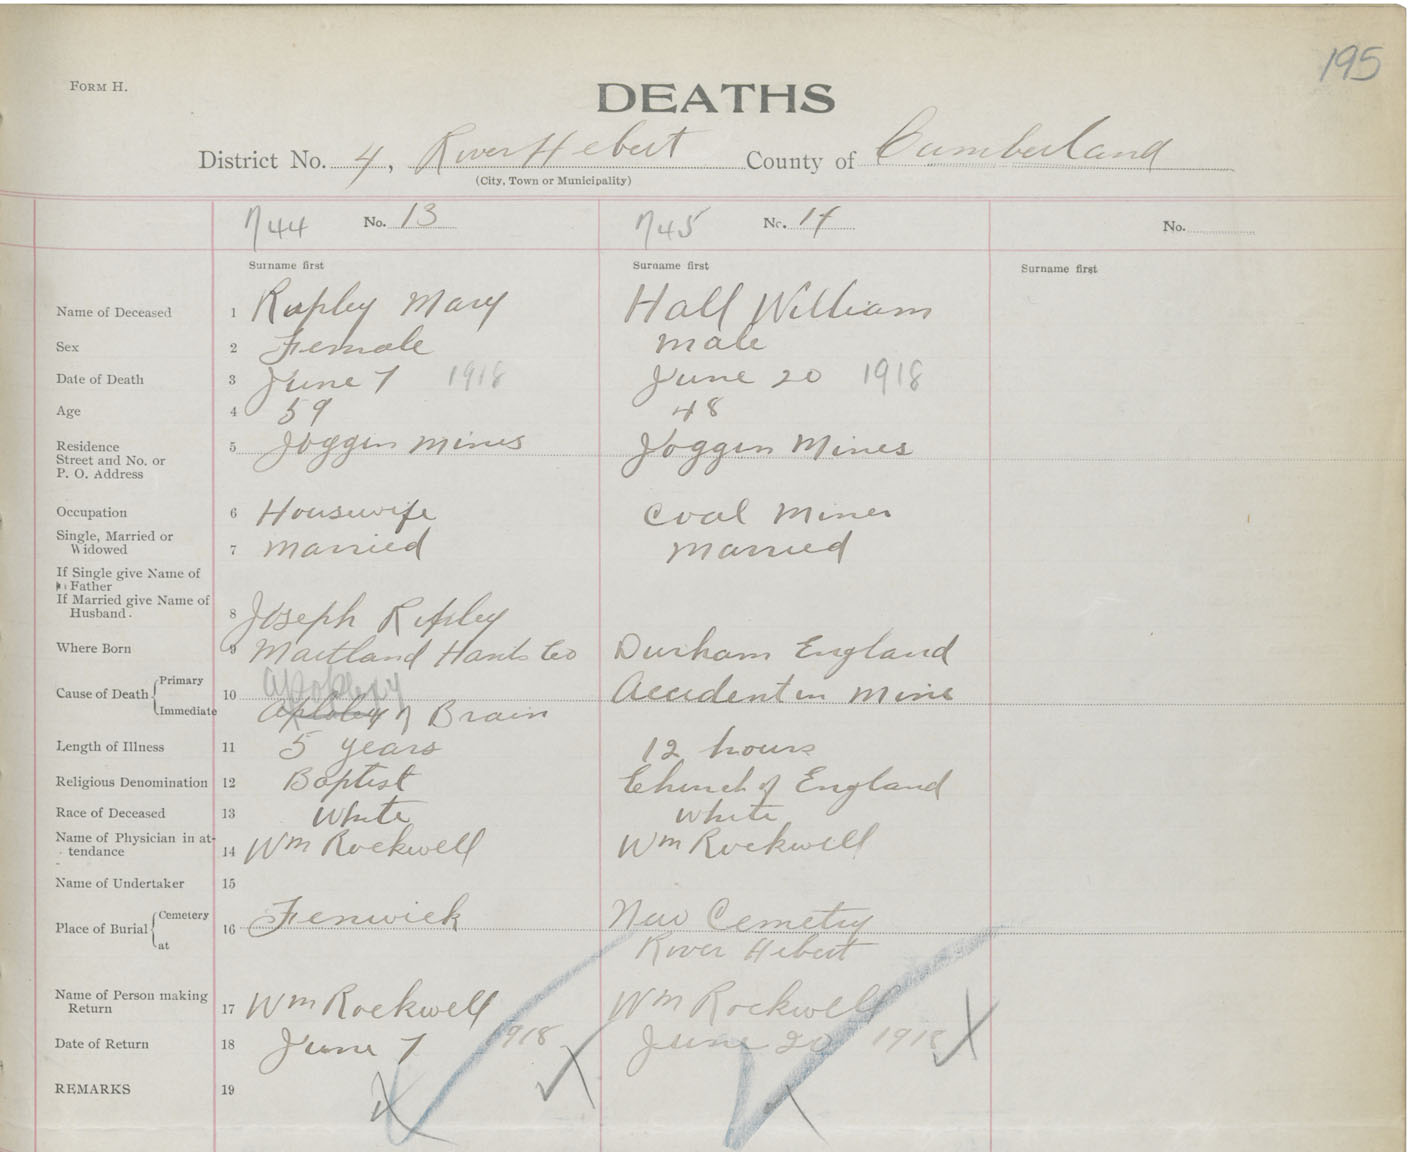 195
FORM H.
DEATHS
District No. 4, River Hebert County of Cumberland
(City, Town or Municipality)
744 No. 13 745 No. 14 No.
Surname first Surname first Surname first
Name of Deceased 1 Rapley Mary Hall William
Sex 2 Female male
Date of Death 3 June 7 1918 June 20 1918
Age 4 59 48
Residence 5 Joggin Mines Joggin Mines
Street and No. or
P. O. Address
Occupation 6 Housewife Coal Miner
Single, Married or
Widowed 7 Married Married
If Single give Name of
Father
If Married give Name of
Husband. 8 Joseph Ripley
Where Born 9 Maitland Hants Co Durham England
Cause of Death Primary 10 apoplexy Accident in Mine
Immediate of Brain
Length of Illness 11 5 years 12 hours
Religious Denomination 12 Baptist Church of England
Race of Deceased 13 White White
Name of Physician in at-
tendance 14 Wm Rockwell Wm Rockwell
Name of Undertaker 15
Place of Burial Cemetery 16 Fenwick New Cemetry
at River Hebert
Name of Person making
Return 17 Wm Rockwell Wm Rockwell
Date of Return 18 June 7 1918 June 20 1918
REMARKS 19